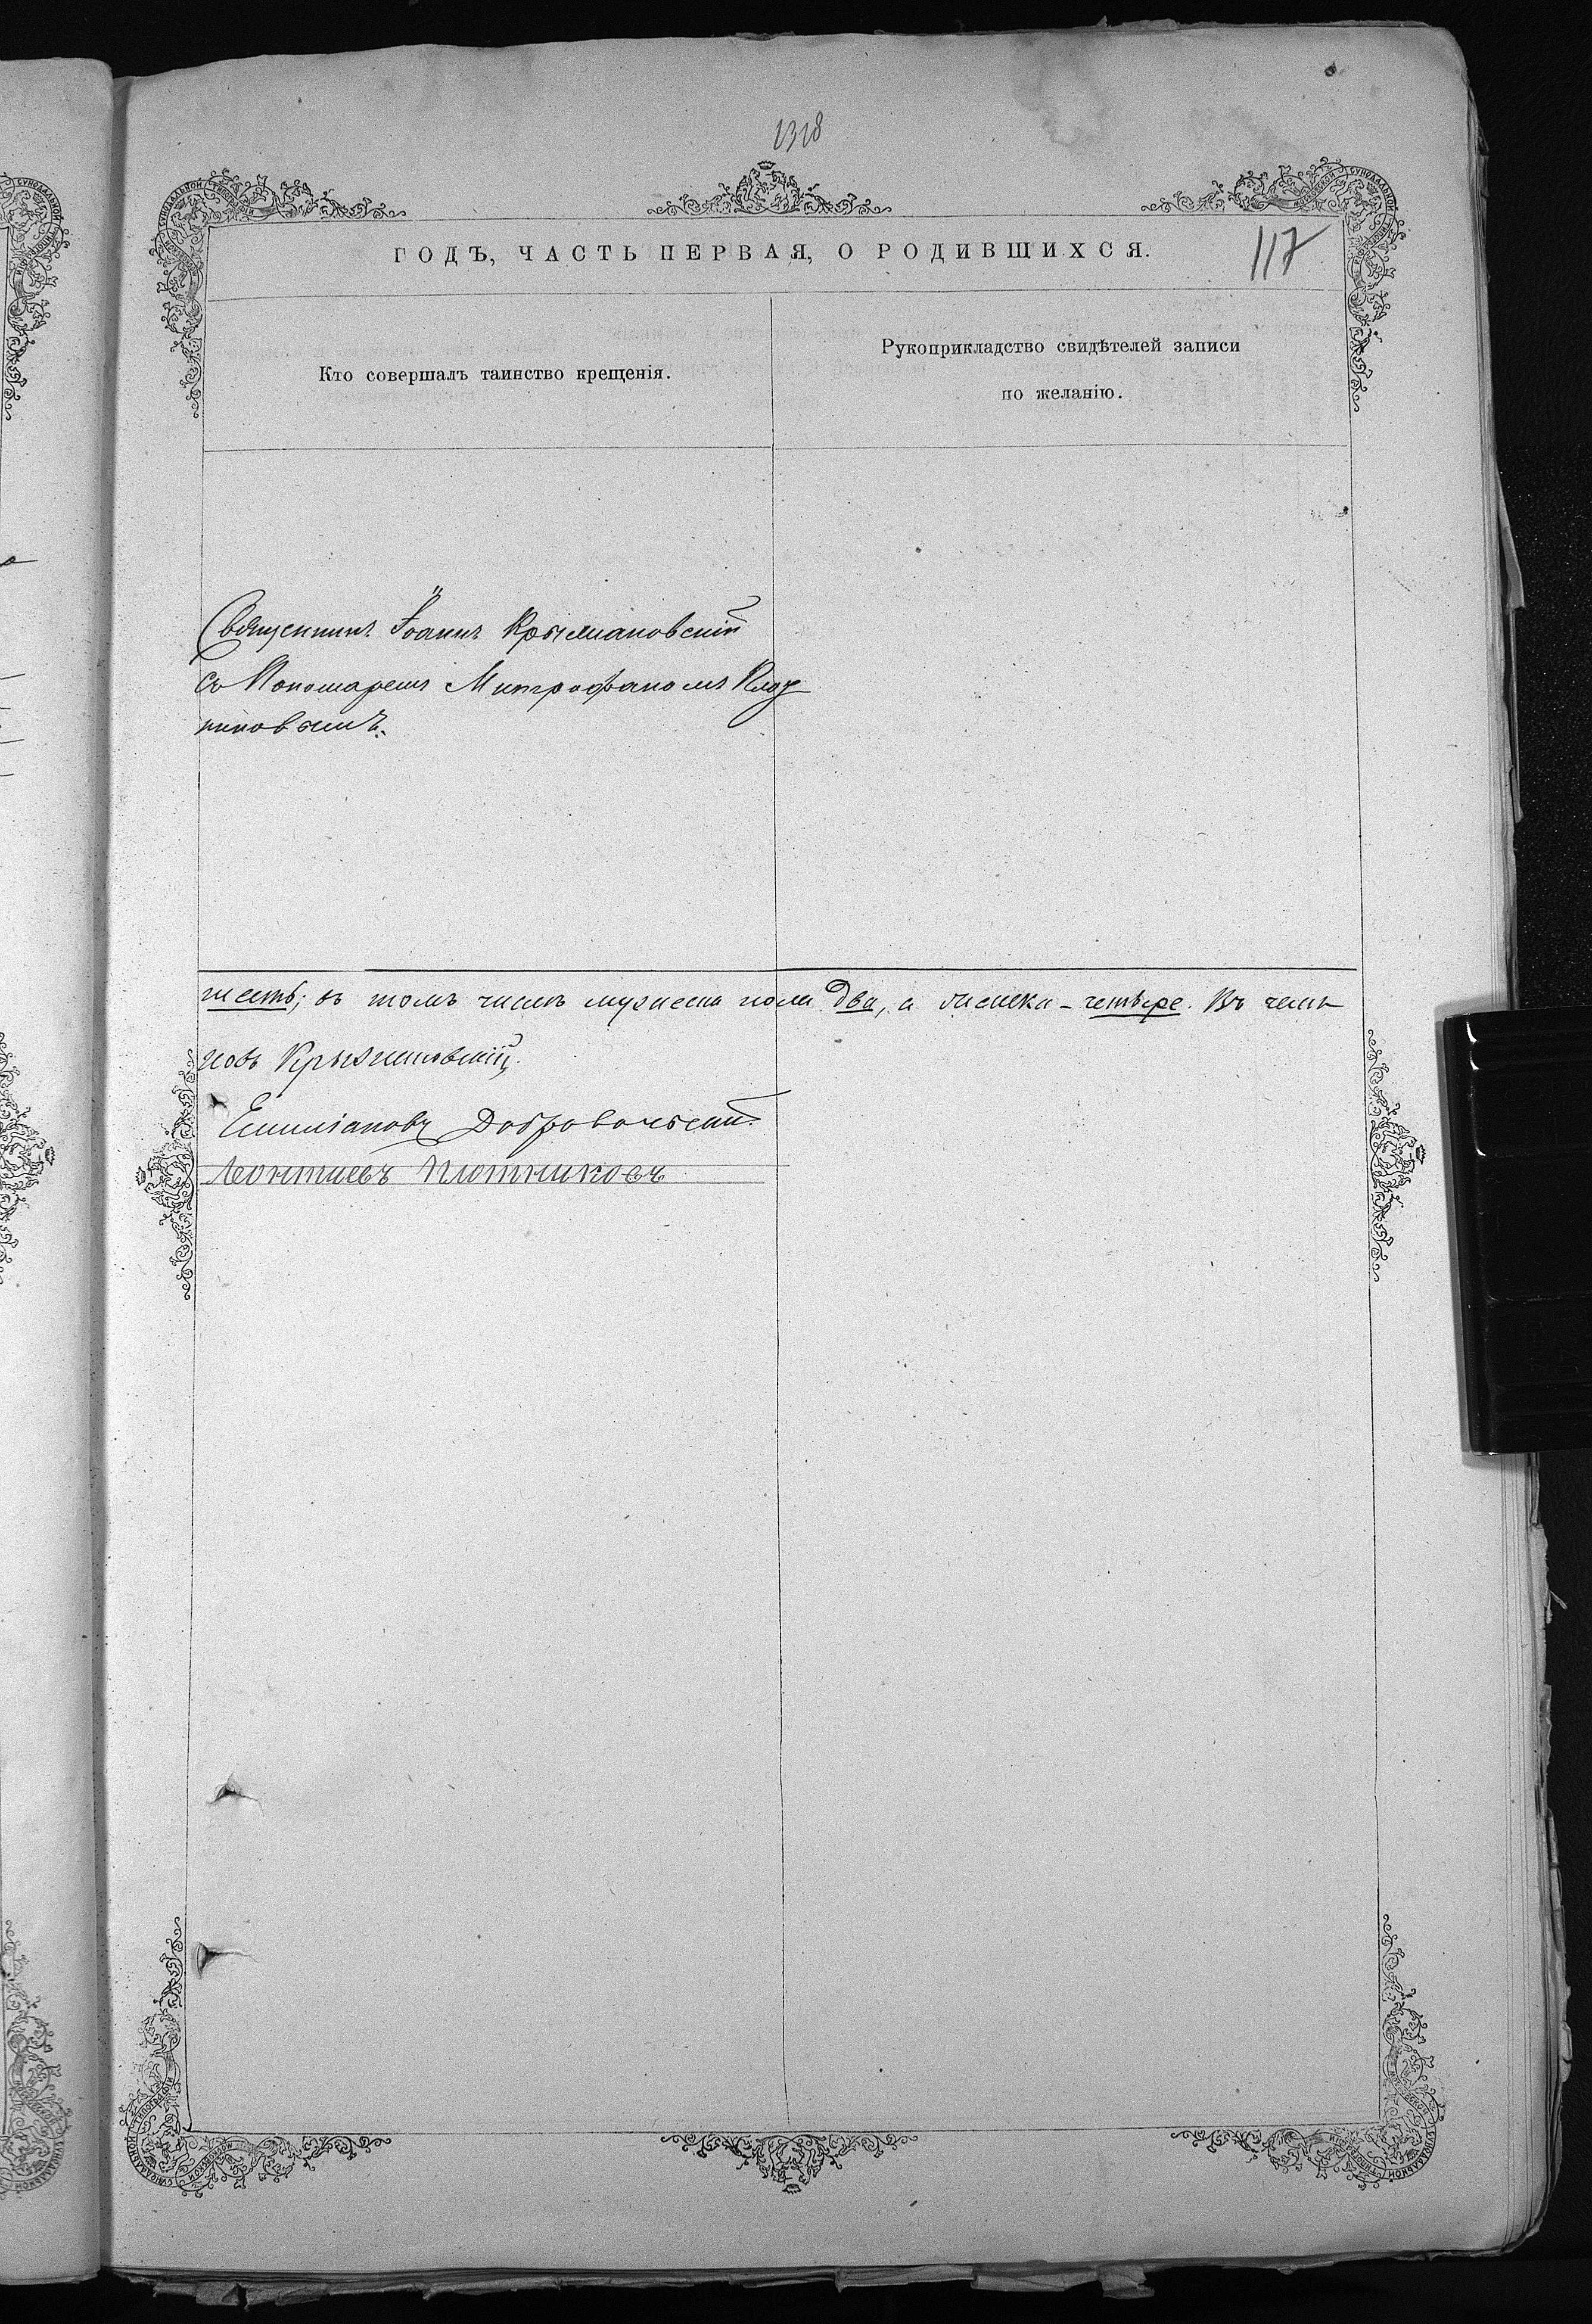 1318
ГОДЪ, ЧАСТЬ ПЕРВАЯ, О РОДИВШИХСЯ.
117
Кто совершалъ таинство крещенія.
Рукоприкладство свидѣтелей записи
по желанію.
Священникъ Іоаннъ Крыжановскій
съ Пономаремъ Митрофаномъ Плот
никовымъ.
шесть; въ томъ числѣ мужеска пола два, а женска - четыре. Въ чемъ
новъ Крыжановскій
Емиліановъ Добровольскій
Леонтиевъ Плотниковъ